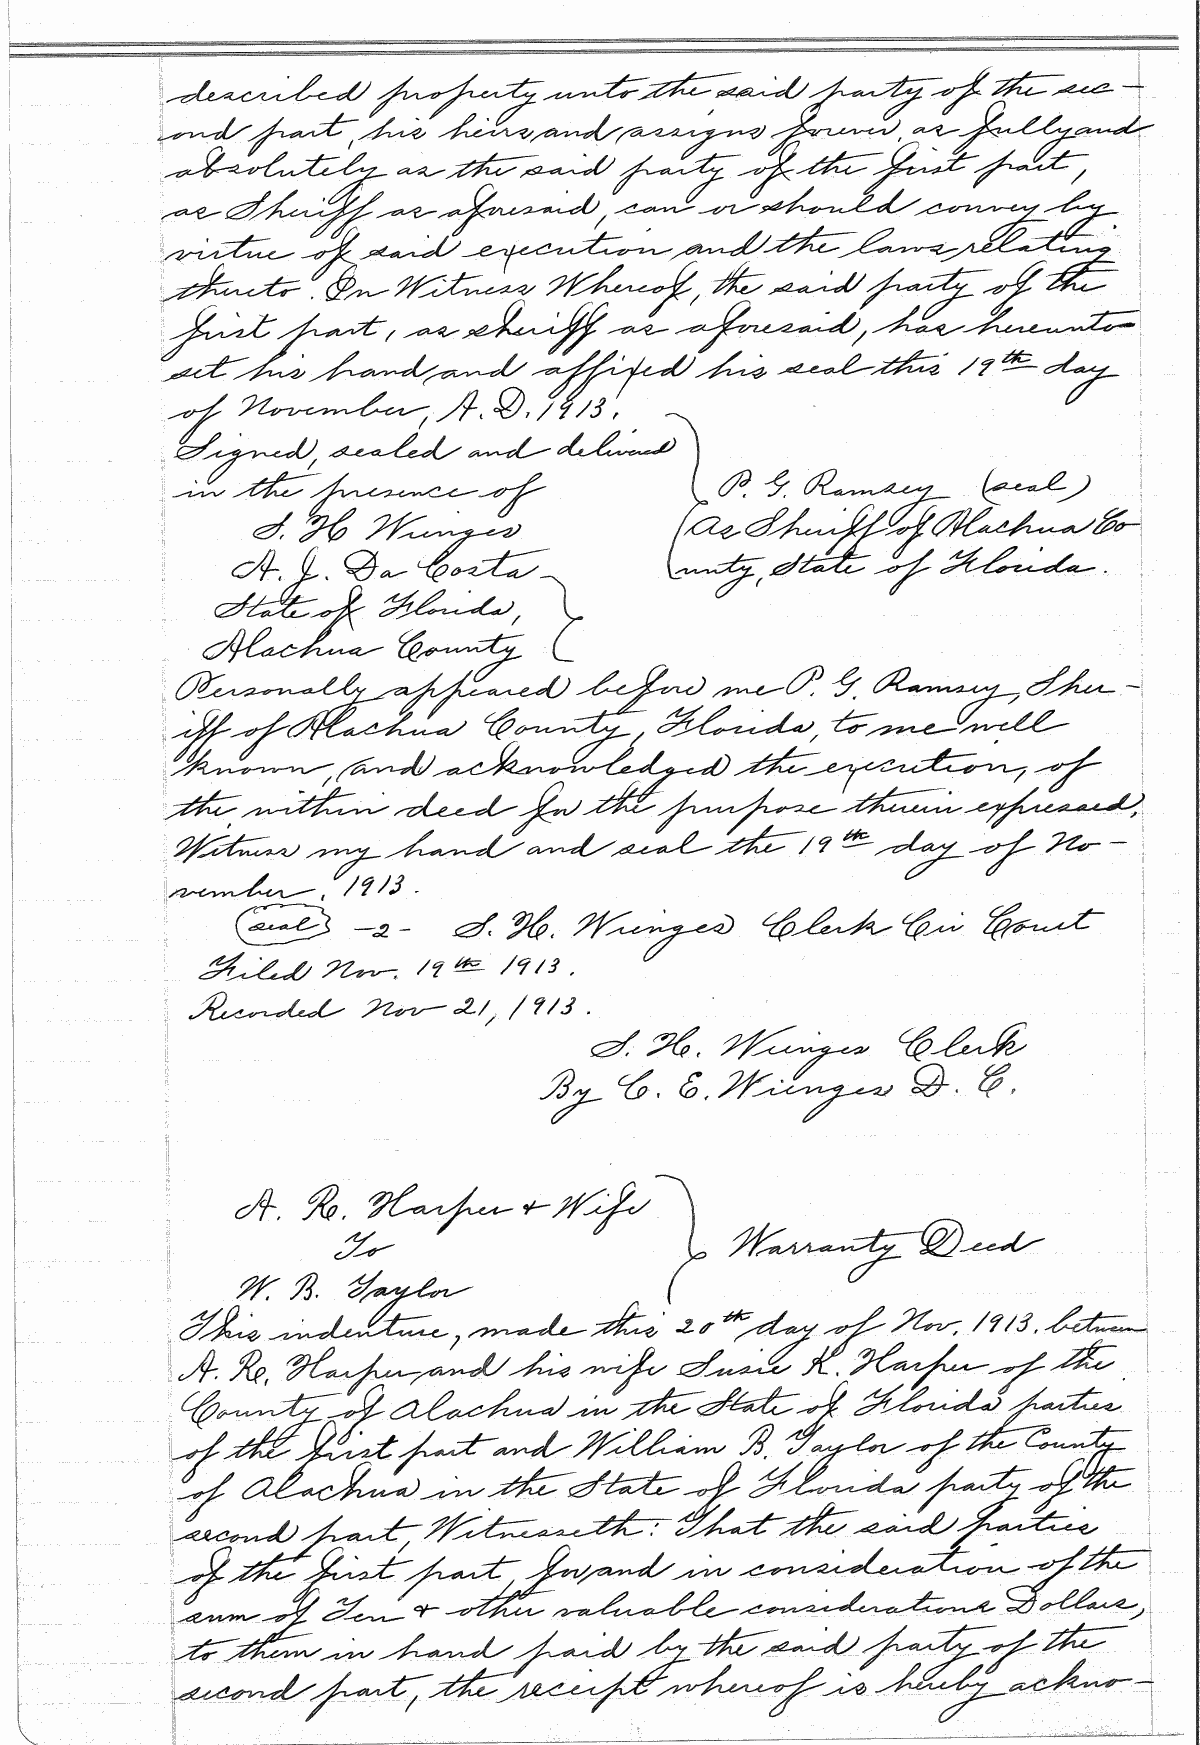 described property unto the said party of the sec-
ond part, his heirs and assigns forever, as fully and
absolutely as the said party of the first part,
as Sheriff as aforesaid, can or should convey by
virtue of said execution and the laws relating
thereto. In Witness Whereof, the said party of the
first part, as sheriff as aforesaid, has hereunto
set his hand and affixed his seal this 19th day
of November, A.D. 1913.
Signed, sealed and delivered
in the presence of
P. G. Ramsey (seal)
S. H. Wienges
As Sheriff of Alachua Co
A. J. Da Costa
unty, State of Florida.
State of Florida,
Alachua County
Personally appeared before me P. G. Ramsey, Sher-
iff of Alachua County, Florida, to me well
known, and acknowledged the execution, of
the within deed for the purpose therein expressed.
Witness my hand and seal the 19th day of No-
vember, 1913.
(seal) -2- S. H. Wienges Clerk Cir Court
Filed Nov. 19th 1913.
Recorded Nov 21, 1913.
S. H. Wienges Clerk
By C. E. Wienges D. C.
A. R. Harper + Wife
To
Warranty Deed
W. B. Taylor
This indenture, made this 20th day of Nov. 1913. between
A. R. Harper and his wife Susie K. Harper of the
County of Alachua in the State of Florida parties
of the first part and William B. Taylor of the County
of Alachua in the State of Florida party of the
second part, Witnesseth: That the said parties
of the first part, for and in consideration of the
sum of Ten + other valuable considerations Dollars,
to them in hand paid by the said party of the
second part, the receipt whereof is hereby ackno-